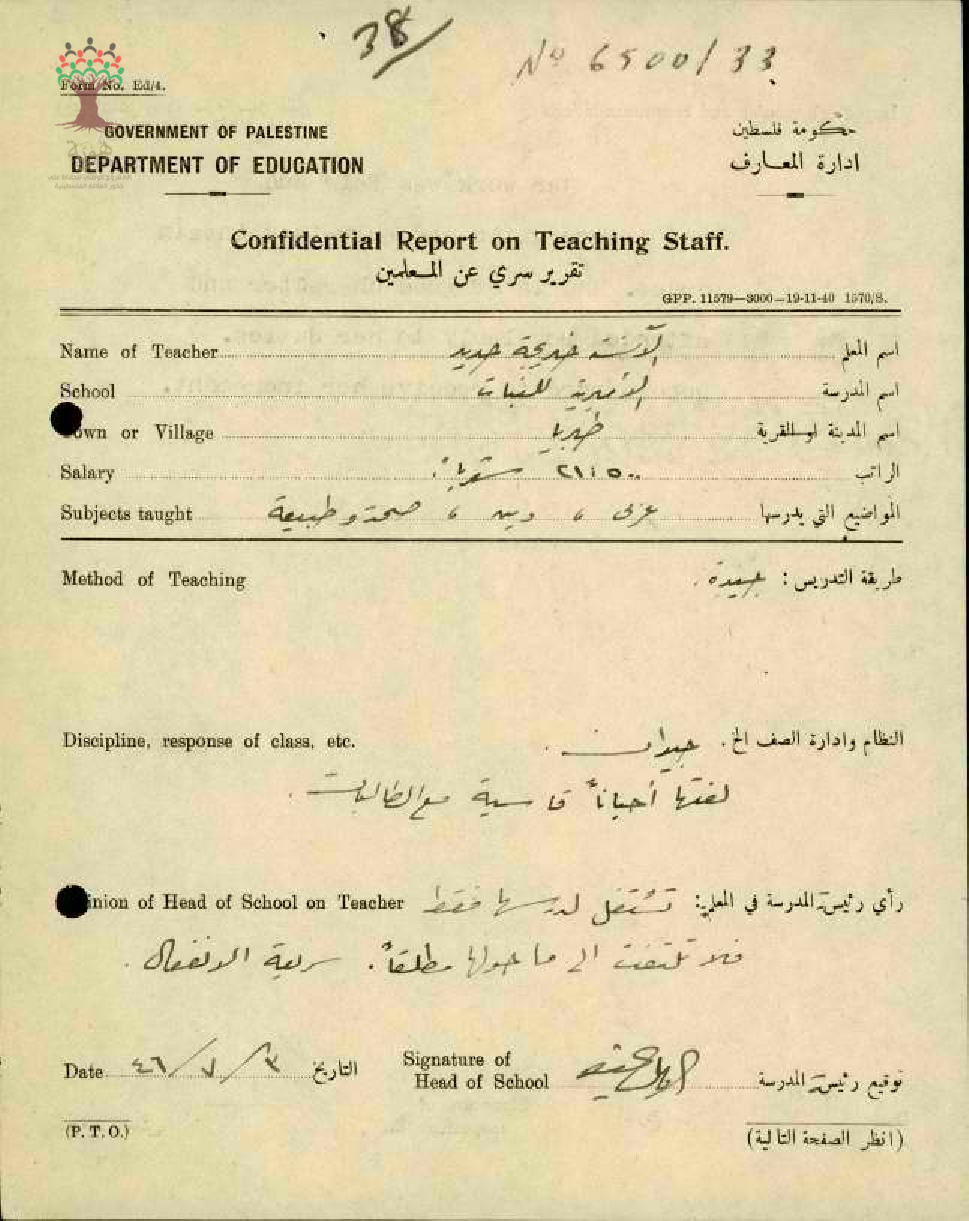 38
No 6500/33
Form No. Ed/4.
GOVERNMENT OF PALESTINE
DEPARTMENT OF EDUCATION
حكومة فلسطين
ادارة المعارف
Confidential Report on Teaching Staff.
تقرير سري عن المعلمين
GPP. 11579—3000—19-11-40 1570/S.
Name of Teacher الآنسة خديجة حديد اسم المعلم
School الأميرية للبنات اسم المدرسة
Town or Village طبريا اسم المدينة او القرية
Salary سنوياً الراتب
Subjects taught عربي ، دين ، صحة وطبيعة المواضيع التي يدرسها
Method of Teaching طريقة التدريس : جيدة .
Discipline, response of class, etc. النظام وادارة الصف الخ . جيدان .
لغتها أحياناً قاسية مع الطالبات .
inion of Head of School on Teacher رأي رئيسة المدرسة في المعلم: تشتغل لدرسها فقط
فلا تلتفت الى ما حولها مطلقاً . سريعة الانفعال .
Date ٣/٧/٤٦ التاريخ
Signature of Head of School توقيع رئيسة المدرسة
(P. T. O.)
(انظر الصفحة التالية)